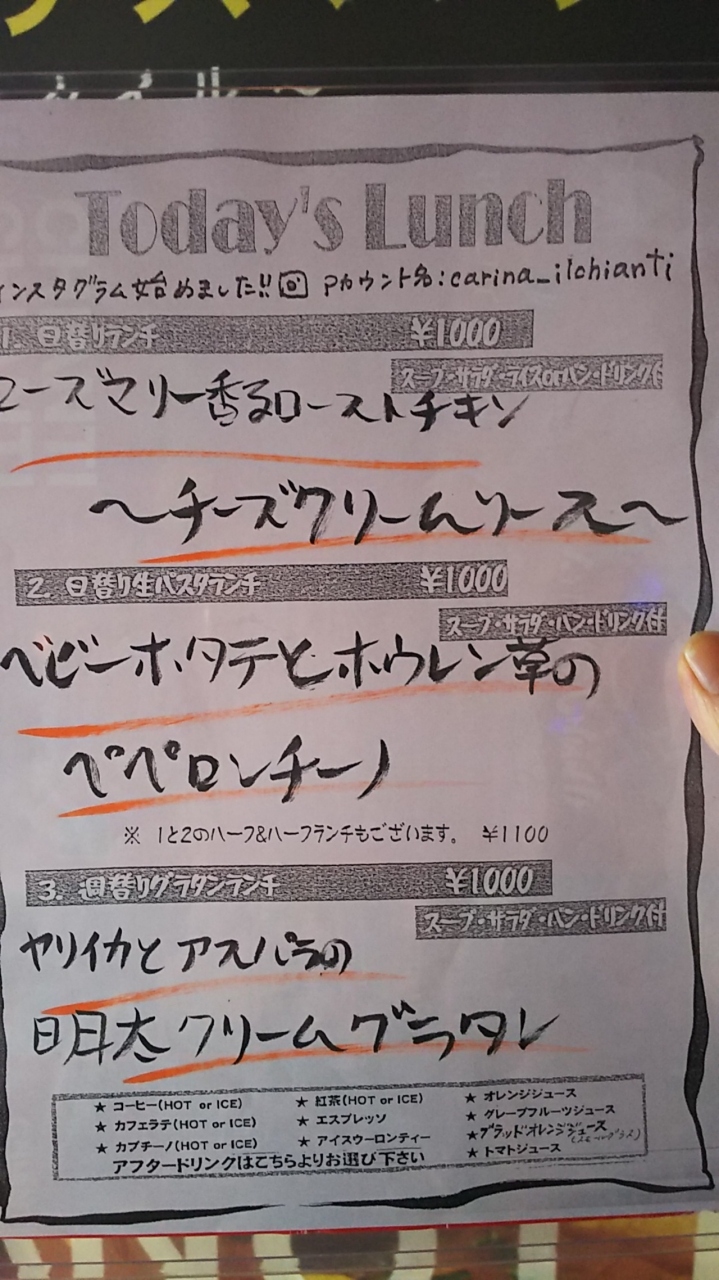 Today's Lunch
インスタグラム始めました!! アカウント名:carina_ilchianti
1. 日替りランチ ¥1000
スープ・サラダ・ライスorパン・ドリンク付
ローズマリー香るローストチキン
〜チーズクリームソース〜
2. 日替り生パスタランチ ¥1000
スープ・サラダ・パン・ドリンク付
ベビーホタテとホウレン草の
ペペロンチーノ
※ 1と2のハーフ&ハーフランチもございます。 ¥1100
3. 週替りグラタンランチ ¥1000
スープ・サラダ・パン・ドリンク付
ヤリイカとアスパラの
明太クリームグラタン
★ コーヒー(HOT or ICE) ★ 紅茶(HOT or ICE) ★ オレンジジュース
★ カフェラテ(HOT or ICE) ★ エスプレッソ ★ グレープフルーツジュース
★ カプチーノ(HOT or ICE) ★ アイスウーロンティー ★ブラッドオレンジジュース
★ トマトジュース
アフタードリンクはこちらよりお選び下さい